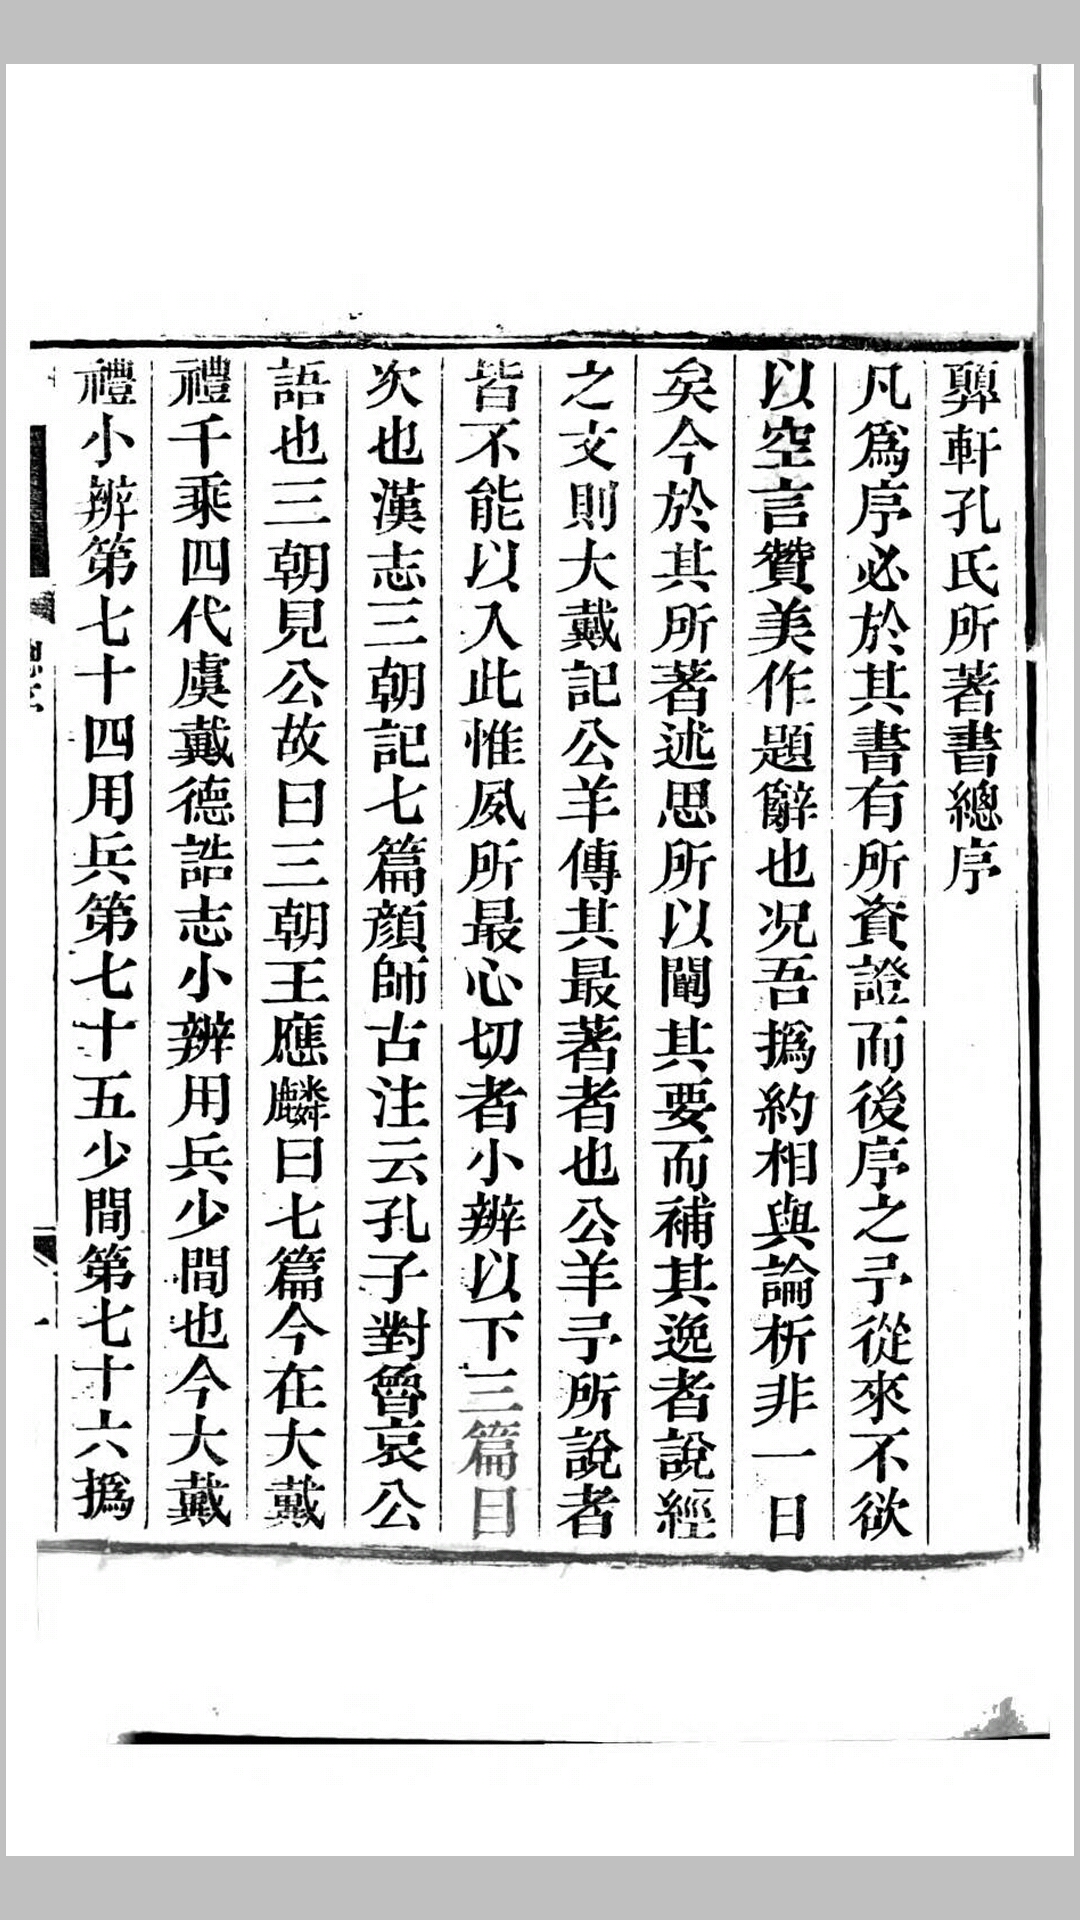 顨軒孔氏所著書總序
凡爲序必於其書有所資證而後序之予從來不欲
以空言贊美作題辭也况吾撝約相與論析非一日
矣今於其所著述思所以闡其要而補其逸者說經
之文則大戴記公羊傳其最著者也公羊予所說者
皆不能以入此惟夙所最心切者小辨以下三篇目
次也漢志三朝記七篇顔師古注云孔子對魯哀公
語也三朝見公故曰三朝王應麟曰七篇今在大戴
禮千乘四代虞戴德誥志小辨用兵少間也今大戴
禮小辨第七十四用兵第七十五少間第七十六撝